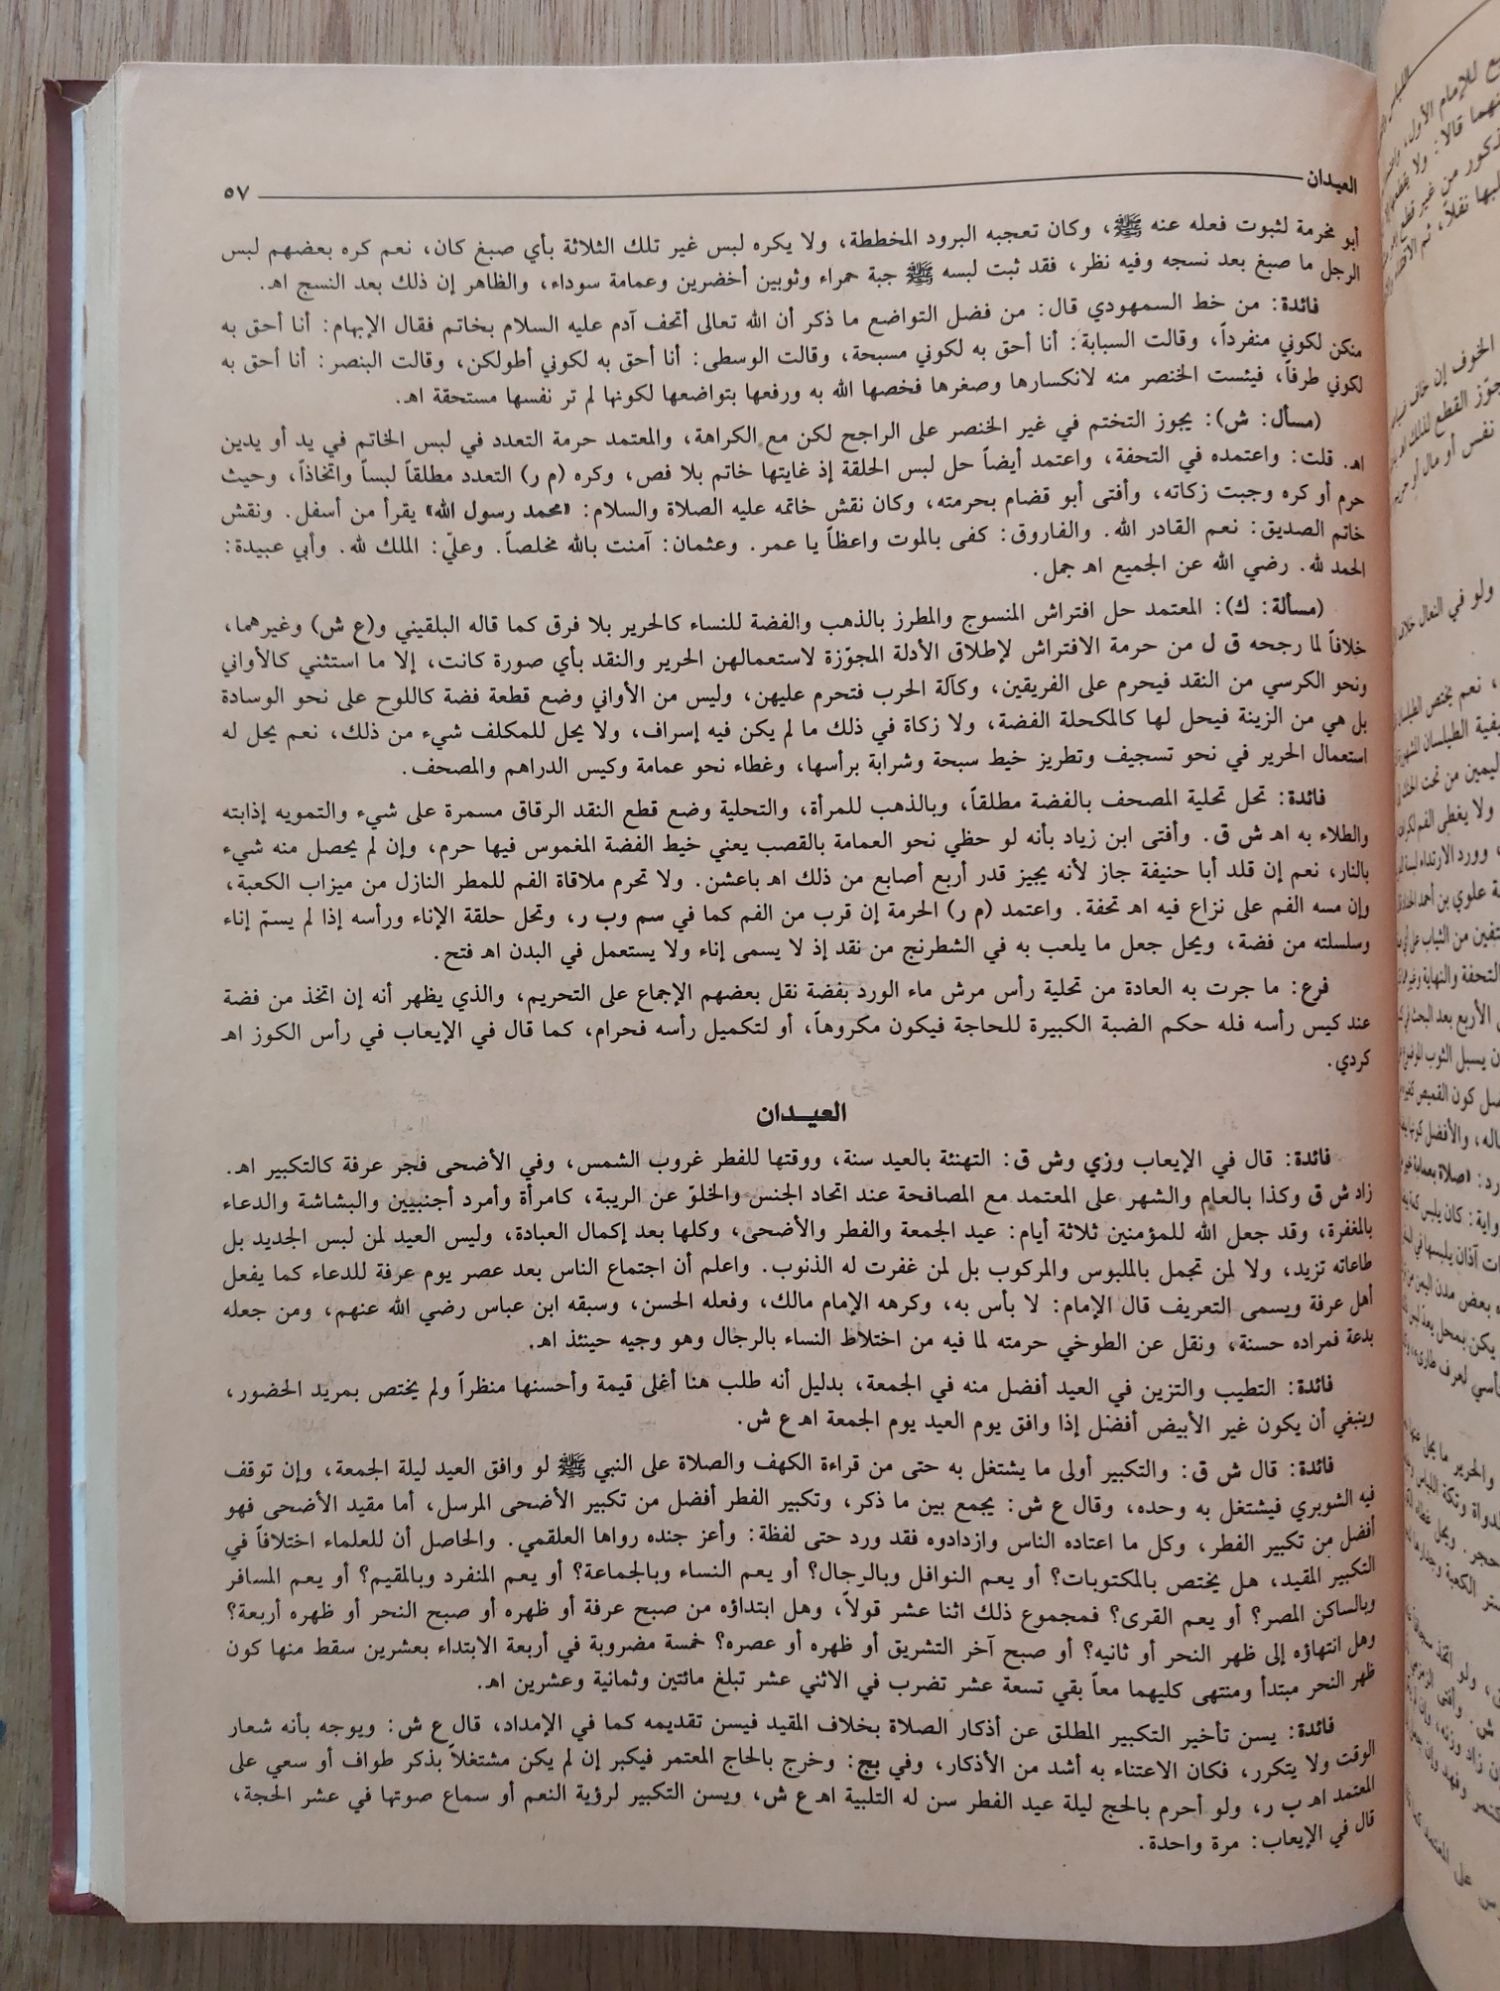 العيدان ٥٧
أبو مخرمة لثبوت فعله عنه ﷺ، وكان تعجبه البرود المخططة، ولا يكره لبس غير تلك الثلاثة بأي صبغ كان، نعم كره بعضهم لبس
الرجل ما صبغ بعد نسجه وفيه نظر، فقد ثبت لبسه ﷺ جبة حمراء وثوبين أخضرين وعمامة سوداء، والظاهر إن ذلك بعد النسج اهـ.
فائدة: من خط السمهودي قال: من فضل التواضع ما ذكر أن الله تعالى أتحف آدم عليه السلام بخاتم فقال الإبهام: أنا أحق به
منكن لكوني منفرداً، وقالت السبابة: أنا أحق به لكوني مسبحة، وقالت الوسطى: أنا أحق به لكوني أطولكن، وقالت البنصر: أنا أحق به
لكوني طرفاً، فيئست الخنصر منه لانكسارها وصغرها فخصها الله به ورفعها بتواضعها لكونها لم تر نفسها مستحقة اهـ.
(مسأل: ش): يجوز التختم في غير الخنصر على الراجح لكن مع الكراهة، والمعتمد حرمة التعدد في لبس الخاتم في يد أو يدين
اهـ. قلت: واعتمده في التحفة، واعتمد أيضاً حل لبس الحلقة إذ غايتها خاتم بلا فص، وكره (م ر) التعدد مطلقاً لبساً واتخاذاً، وحيث
حرم أو كره وجبت زكاته، وأفتى أبو قضام بحرمته، وكان نقش خاتمه عليه الصلاة والسلام: «محمد رسول الله» يقرأ من أسفل. ونقش
خاتم الصديق: نعم القادر الله. والفاروق: كفى بالموت واعظاً يا عمر. وعثمان: آمنت بالله مخلصاً. وعليّ: الملك لله. وأبي عبيدة:
الحمد لله. رضي الله عن الجميع اهـ جمل.
(مسألة: ك): المعتمد حل افتراش المنسوج والمطرز بالذهب والفضة للنساء كالحرير بلا فرق كما قاله البلقيني و(ع ش) وغيرهما،
خلافاً لما رجحه ق ل من حرمة الافتراش لإطلاق الأدلة المجوّزة لاستعمالهن الحرير والنقد بأي صورة كانت، إلا ما استثني كالأواني
ونحو الكرسي من النقد فيحرم على الفريقين، وكآلة الحرب فتحرم عليهن، وليس من الأواني وضع قطعة فضة كاللوح على نحو الوسادة
بل هي من الزينة فيحل لها كالمكحلة الفضة، ولا زكاة في ذلك ما لم يكن فيه إسراف، ولا يحل للمكلف شيء من ذلك، نعم يحل له
استعمال الحرير في نحو تسجيف وتطريز خيط سبحة وشرابة برأسها، وغطاء نحو عمامة وكيس الدراهم والمصحف.
فائدة: تحل تحلية المصحف بالفضة مطلقاً، وبالذهب للمرأة، والتحلية وضع قطع النقد الرقاق مسمرة على شيء والتمويه إذابته
والطلاء به اهـ ش ق. وأفتى ابن زياد بأنه لو حظي نحو العمامة بالقصب يعني خيط الفضة المغموس فيها حرم، وإن لم يحصل منه شيء
بالنار، نعم إن قلد أبا حنيفة جاز لأنه يجيز قدر أربع أصابع من ذلك اهـ باعشن. ولا تحرم ملاقاة الفم للمطر النازل من ميزاب الكعبة،
وإن مسه الفم على نزاع فيه اهـ تحفة. واعتمد (م ر) الحرمة إن قرب من الفم كما في سم وب ر، وتحل حلقة الإناء ورأسه إذا لم يسمّ إناء
وسلسلته من فضة، ويحل جعل ما يلعب به في الشطرنج من نقد إذ لا يسمى إناء ولا يستعمل في البدن اهـ فتح.
فرع: ما جرت به العادة من تحلية رأس مرش ماء الورد بفضة نقل بعضهم الإجماع على التحريم، والذي يظهر أنه إن اتخذ من فضة
عند كيس رأسه فله حكم الضبة الكبيرة للحاجة فيكون مكروهاً، أو لتكميل رأسه فحرام، كما قال في الإيعاب في رأس الكوز اهـ
كردي.
العيـدان
فائدة: قال في الإيعاب وزي وش ق: التهنئة بالعيد سنة، ووقتها للفطر غروب الشمس، وفي الأضحى فجر عرفة كالتكبير اهـ.
زاد ش ق وكذا بالعام والشهر على المعتمد مع المصافحة عند اتحاد الجنس والخلوّ عن الريبة، كامرأة وأمرد أجنبيين والبشاشة والدعاء
بالمغفرة، وقد جعل الله للمؤمنين ثلاثة أيام: عيد الجمعة والفطر والأضحى، وكلها بعد إكمال العبادة، وليس العيد لمن لبس الجديد بل
طاعاته تزيد، ولا لمن تجمل بالملبوس والمركوب بل لمن غفرت له الذنوب. واعلم أن اجتماع الناس بعد عصر يوم عرفة للدعاء كما يفعل
أهل عرفة ويسمى التعريف قال الإمام: لا بأس به، وكرهه الإمام مالك، وفعله الحسن، وسبقه ابن عباس رضي الله عنهم، ومن جعله
بدعة فمراده حسنة، ونقل عن الطوخي حرمته لما فيه من اختلاط النساء بالرجال وهو وجيه حينئذ اهـ.
فائدة: التطيب والتزين في العيد أفضل منه في الجمعة، بدليل أنه طلب هنا أغلى قيمة وأحسنها منظراً ولم يختص بمريد الحضور،
وينبغي أن يكون غير الأبيض أفضل إذا وافق يوم العيد يوم الجمعة اهـ ع ش.
فائدة: قال ش ق: والتكبير أولى ما يشتغل به حتى من قراءة الكهف والصلاة على النبي ﷺ لو وافق العيد ليلة الجمعة، وإن توقف
فيه الشوبري فيشتغل به وحده، وقال ع ش: يجمع بين ما ذكر، وتكبير الفطر أفضل من تكبير الأضحى المرسل، أما مقيد الأضحى فهو
أفضل من تكبير الفطر، وكل ما اعتاده الناس وازدادوه فقد ورد حتى لفظة: وأعز جنده رواها العلقمي. والحاصل أن للعلماء اختلافاً في
التكبير المقيد، هل يختص بالمكتوبات؟ أو يعم النوافل وبالرجال؟ أو يعم النساء وبالجماعة؟ أو يعم المنفرد وبالمقيم؟ أو يعم المسافر
وبالساكن المصر؟ أو يعم القرى؟ فمجموع ذلك اثنا عشر قولاً، وهل ابتداؤه من صبح عرفة أو ظهره أو صبح النحر أو ظهره أربعة؟
وهل انتهاؤه إلى ظهر النحر أو ثانيه؟ أو صبح آخر التشريق أو ظهره أو عصره؟ خمسة مضروبة في أربعة الابتداء بعشرين سقط منها كون
ظهر النحر مبتدأ ومنتهى كليهما معاً بقي تسعة عشر تضرب في الاثني عشر تبلغ مائتين وثمانية وعشرين اهـ.
فائدة: يسن تأخير التكبير المطلق عن أذكار الصلاة بخلاف المقيد فيسن تقديمه كما في الإمداد، قال ع ش: ويوجه بأنه شعار
الوقت ولا يتكرر، فكان الاعتناء به أشد من الأذكار، وفي بج: وخرج بالحاج المعتمر فيكبر إن لم يكن مشتغلاً بذكر طواف أو سعي على
المعتمد اهـ ب ر، ولو أحرم بالحج ليلة عيد الفطر سن له التلبية اهـ ع ش، ويسن التكبير لرؤية النعم أو سماع صوتها في عشر الحجة،
قال في الإيعاب: مرة واحدة.